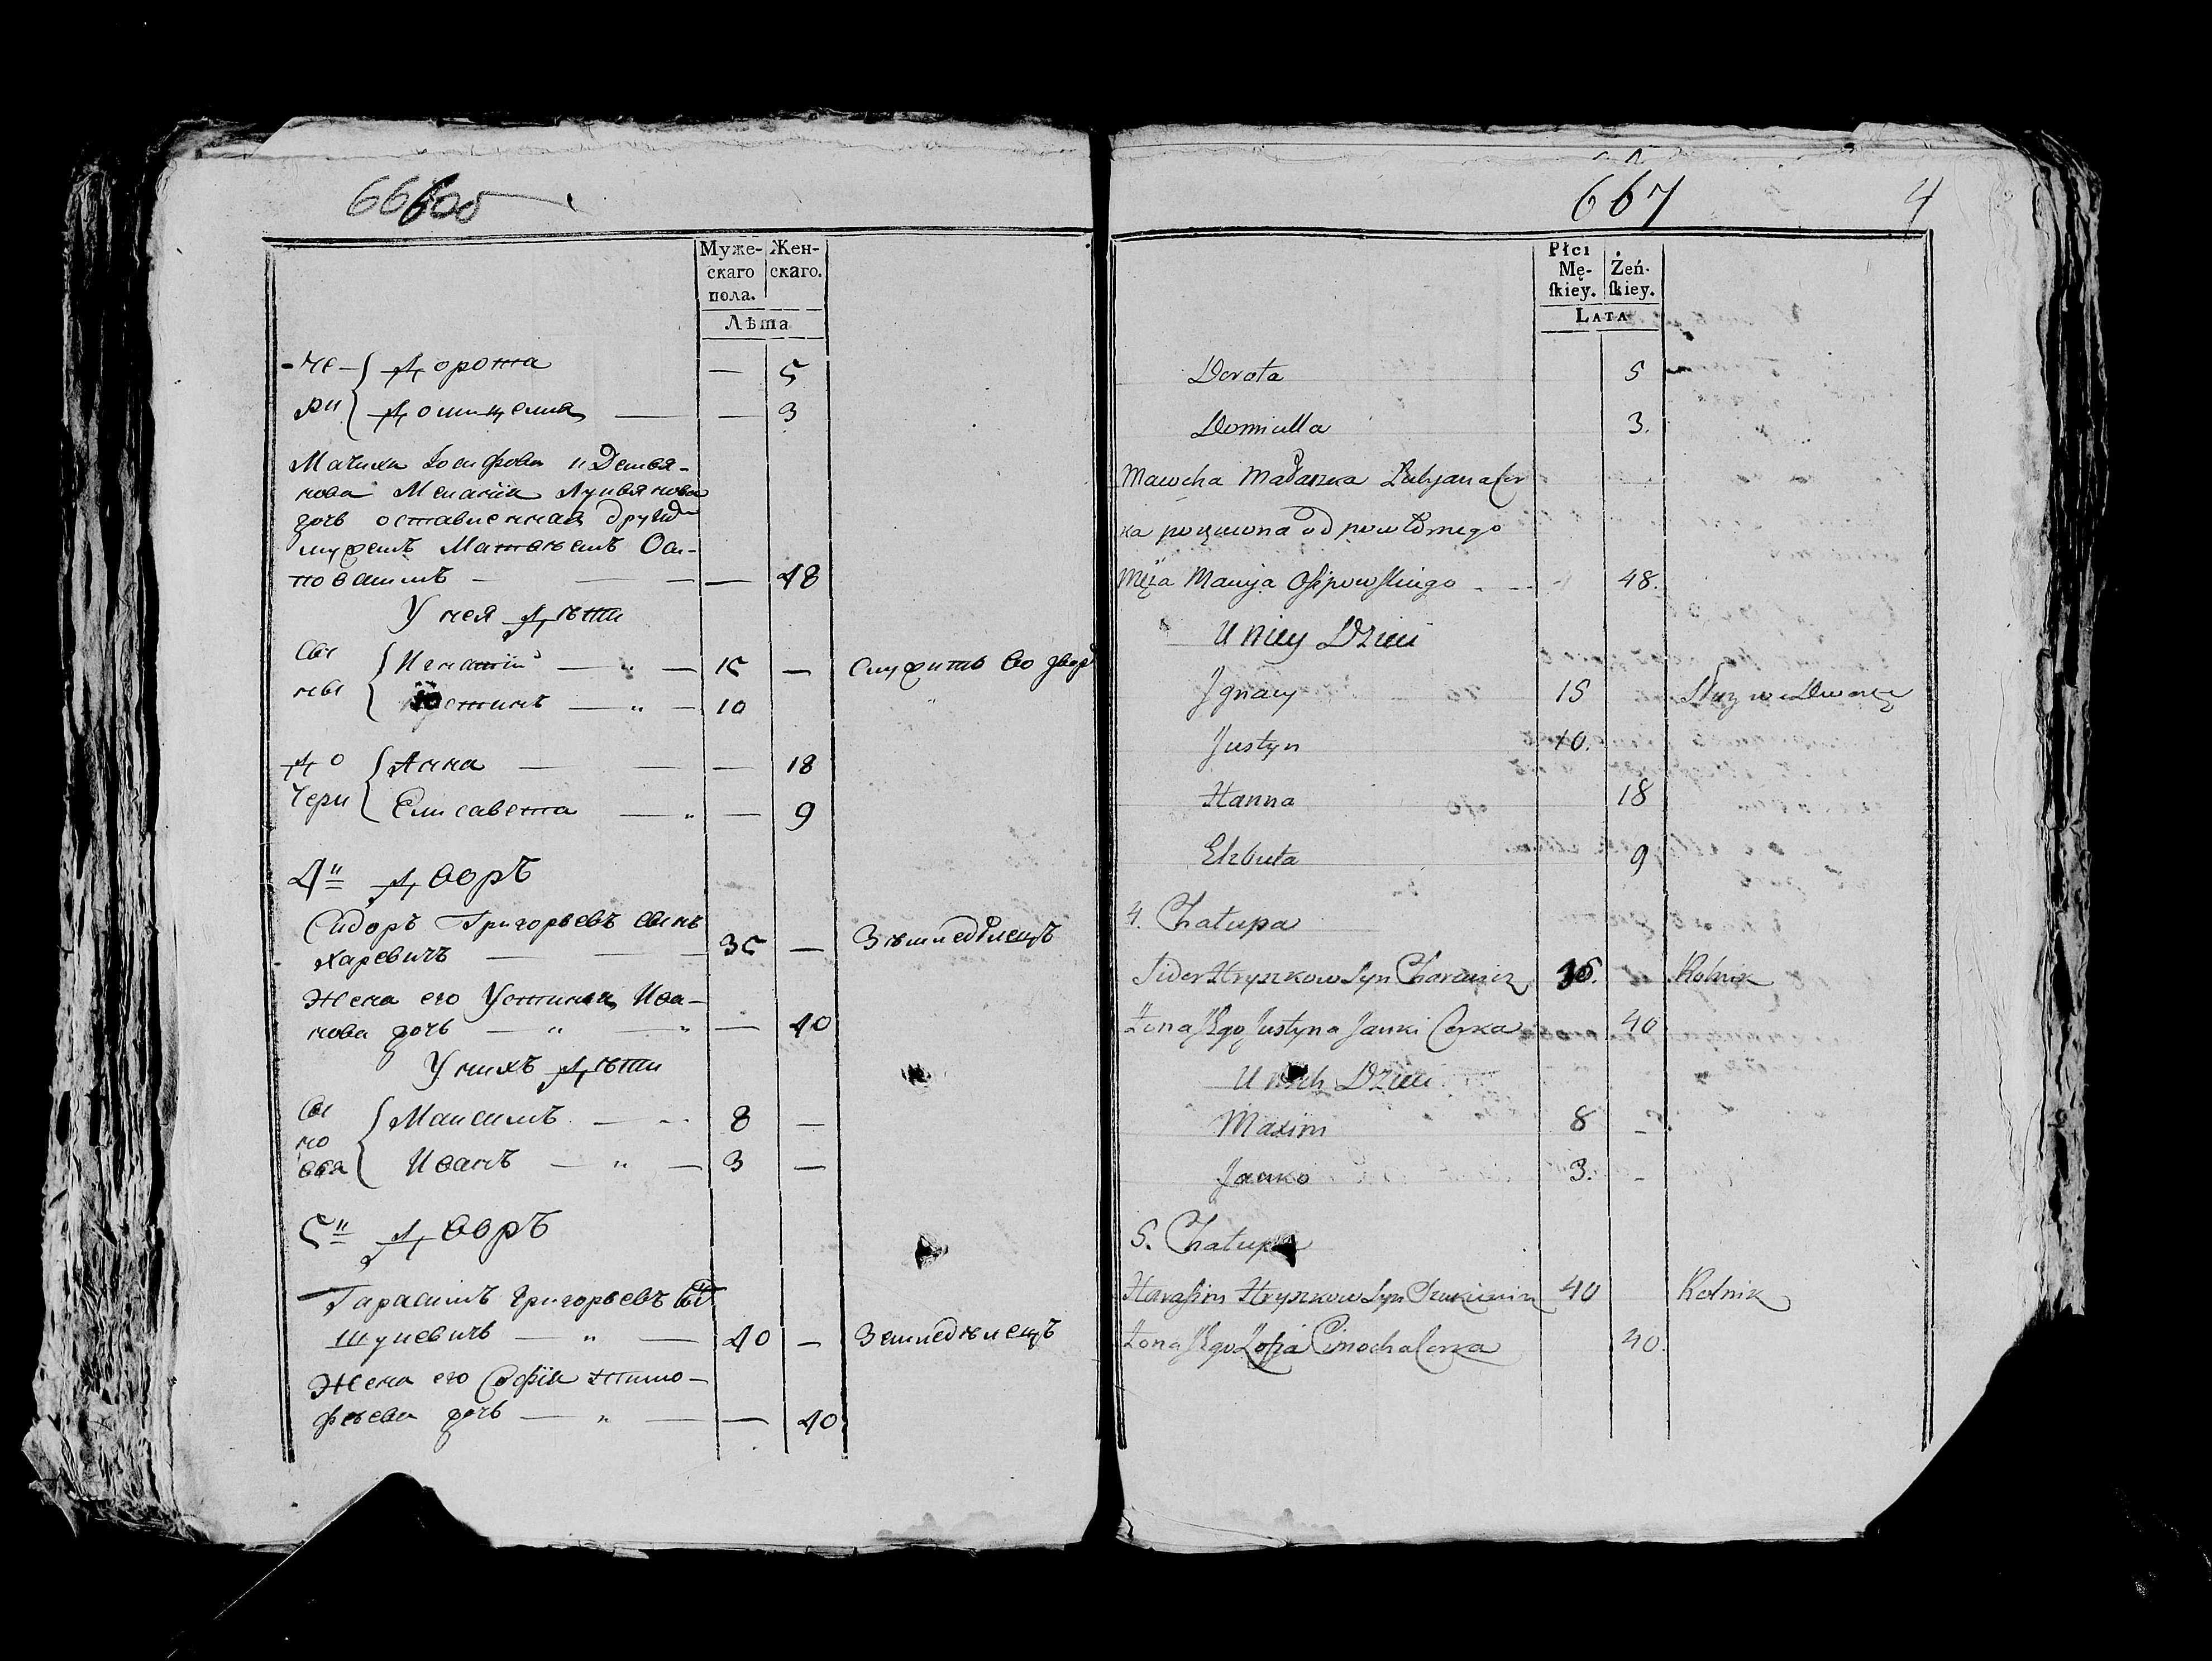 666об
Муже-
скаго
пола.
Жен-
скаго.
Лѣта
- че - Дорота — 5
ри Домицелля — — 3
Мачиха Іосифова и Демья-
нова Меланія Лукьянова
дочь оставленная
мужемъ Матвѣемъ Оси-
повымъ — — — 48
У нея Дѣти
Сы Игнатій — " — 15 — Служитъ во дворѣ
ны Юстинъ — " — 10
До Анна — — — 18
чери Елисавета — " — 9
4й Дворъ
Сидоръ Григорьевъ сынъ
Харевичъ — — 35 — Землѣдѣлецъ
Жена его Устинья Ива-
нова дочь — " — " — 40
У нихъ Дѣти
Сы Максимъ — - 8 —
но
вья Иванъ — " — 3 —
5й Дворъ
Гарасимъ Григорьевъ сынъ
— " — 40 — Земледѣлецъ
Жена его Софія Тимо-
фѣева дочь — " — — 40
667 4
Płci
Mę-
ſkiey.
Żeń-
ſkiey.
Lata
Dorota 5
Domicella 3.
Macocha Lukjana Cor
ka od powtórnego
Męża Macieja Osipowskiego - - 48.
U niey Dzieci
Ignacy 15 Służy we Dworze
Justyn 10.
Hanna 18
Elzbieta 9
4. Chałupa
Sidor Hryszkow Syn Charewicz 35. Rolnik
Żona Jego Justyna Janki Corka 40
U nich Dzieci
Maxim 8 -
Janko 3. -
5. Chałupa
Harasim Hryszkow Syn 40 Rolnik
Żona Jego Zofia Cimocha Corka 40.